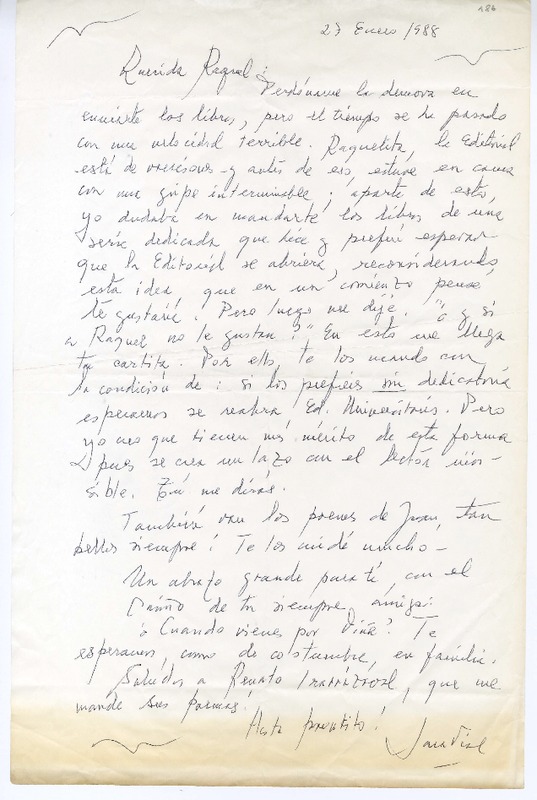 186
27 Enero /1988
Querida Raquel:
Perdóname la demora en
enviarte los libros, pero el tiempo se ha pasado
con una velocidad terrible. Raquelita, la Editorial
está de vacaciones y antes de eso, estuve en cama
con una gripe interminable; aparte de esto,
yo dudaba en mandarte los libros de una
serie dedicada que hice y preferí esperar
que la Editorial se abriera, reconsiderando,
esta idea que en un comienzo pensé,
te gustaría. Pero luego me dije. "¿y si
a Raquel no le gustan?" En esto me llega
tu cartita. Por ello, te los mando con
la condición de: si los prefieres sin dedicatoria
esperamos se reabra Ed. Universitaria. Pero
yo creo que tienen más mérito de esta forma
pues se crea un lazo con el lector invi-
sible. Tú me dirás.
También van los poemas de Juan, tan
bellos siempre! Te los cuidé mucho -
Un abrazo grande para ti, con el
cariño de tu siempre amiga:
¿Cuando vienes por Viña? Te
esperamos, como de costumbre, en familia.
Saludos a Renato Irarrázaval, que me
mande sus poemas!
Hasta prontito!
Sara Vial